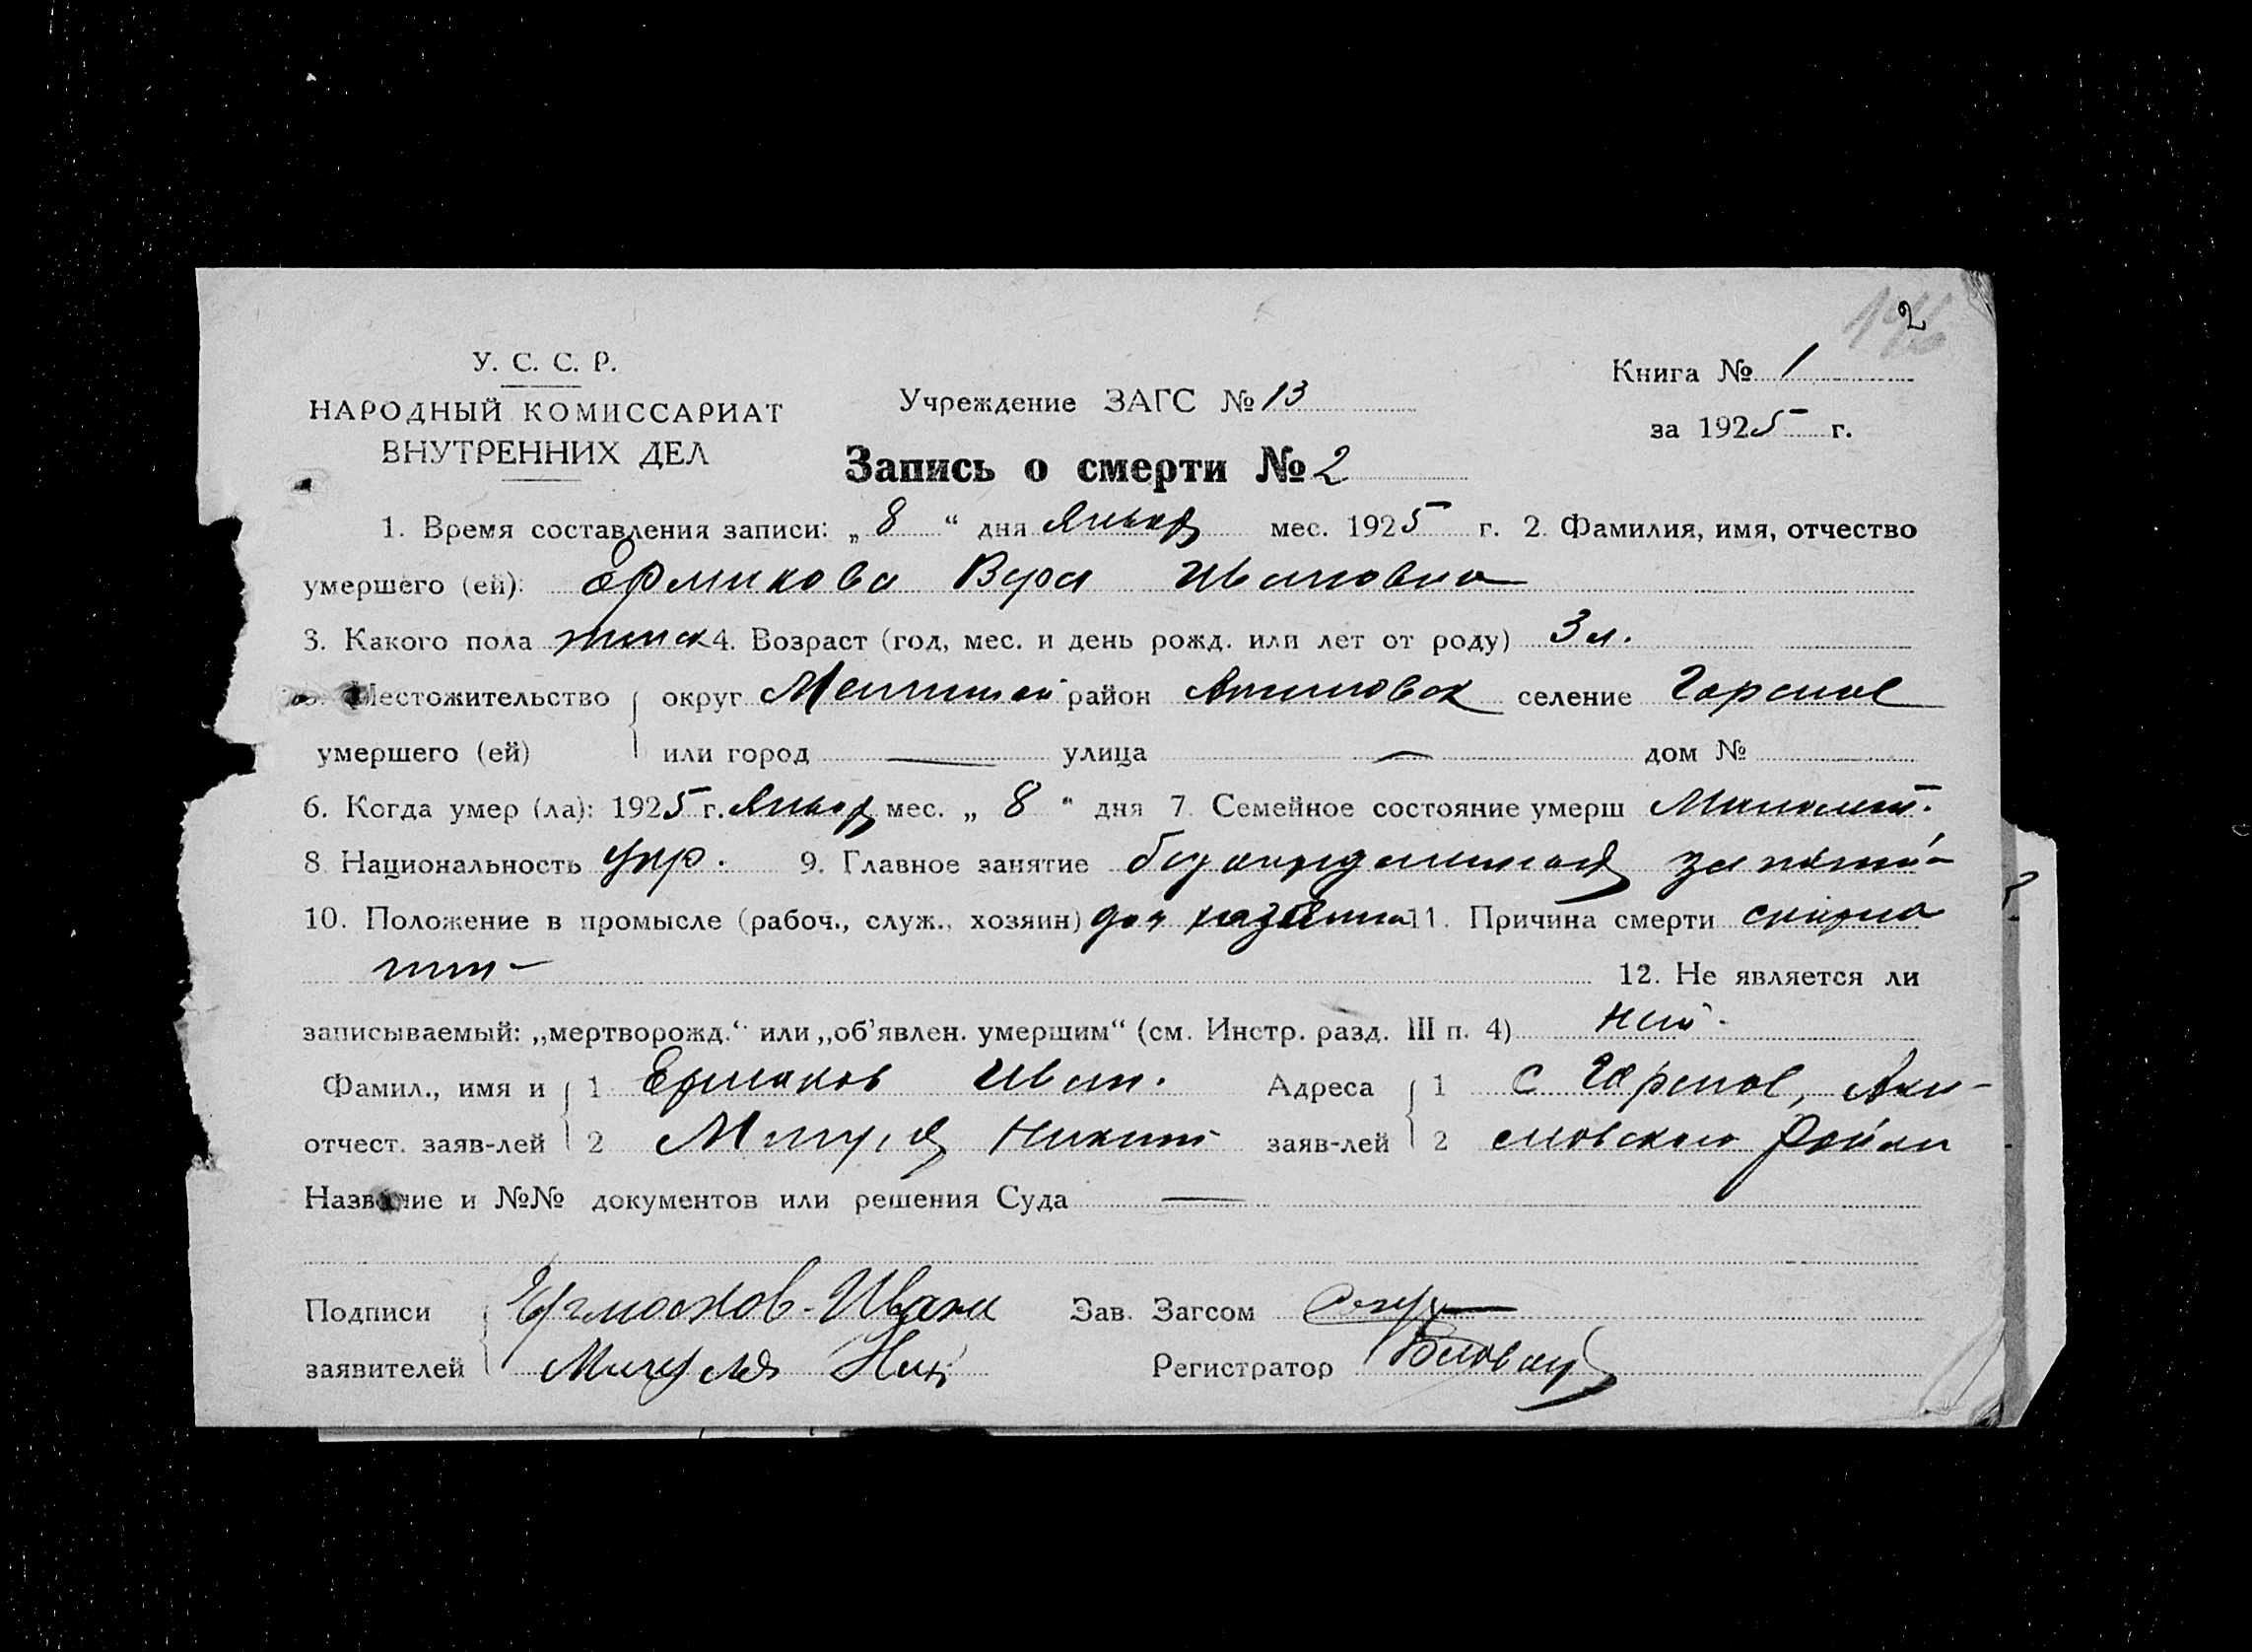 2
У. С. С. Р.
НАРОДНЫЙ КОМИССАРИАТ
ВНУТРЕННИХ ДЕЛ
Учреждение ЗАГС № 13
Книга № 1
за 1925 г.
Запись о смерти № 2
1. Время составления записи: „ 8 “ дня Январ мес. 1925 г. 2. Фамилия, имя, отчество
умершего (ей): Ермакова Вера Ивановна
3. Какого пола женск 4. Возраст (год, мес. и день рожд. или лет от роду) 3 л.
Местожительство округ район Акимовск селение Горелое
умершего (ей) или город — улица — дом №
6. Когда умер (ла): 1925 г. Январ мес. „ 8 “ дня 7. Семейное состояние умерш Малолет.
8. Национальность укр. 9. Главное занятие
10. Положение в промысле (рабоч., служ., хозяин) 11. Причина смерти скарла
тин-
12. Не является ли
записываемый: „мертворожд.“ или „об’явлен. умершим“ (см. Инстр. разд. III п. 4) нет.
Фамил., имя и 1 Ермаков Иван. Адреса 1 с Горелое, Аки-
отчест. заяв-лей 2 Никит заяв-лей 2 мовского Район
Название и №№ документов или решения Суда —
Подписи Ермаков-Иван Зав. Загсом
заявителей Ник Регистратор